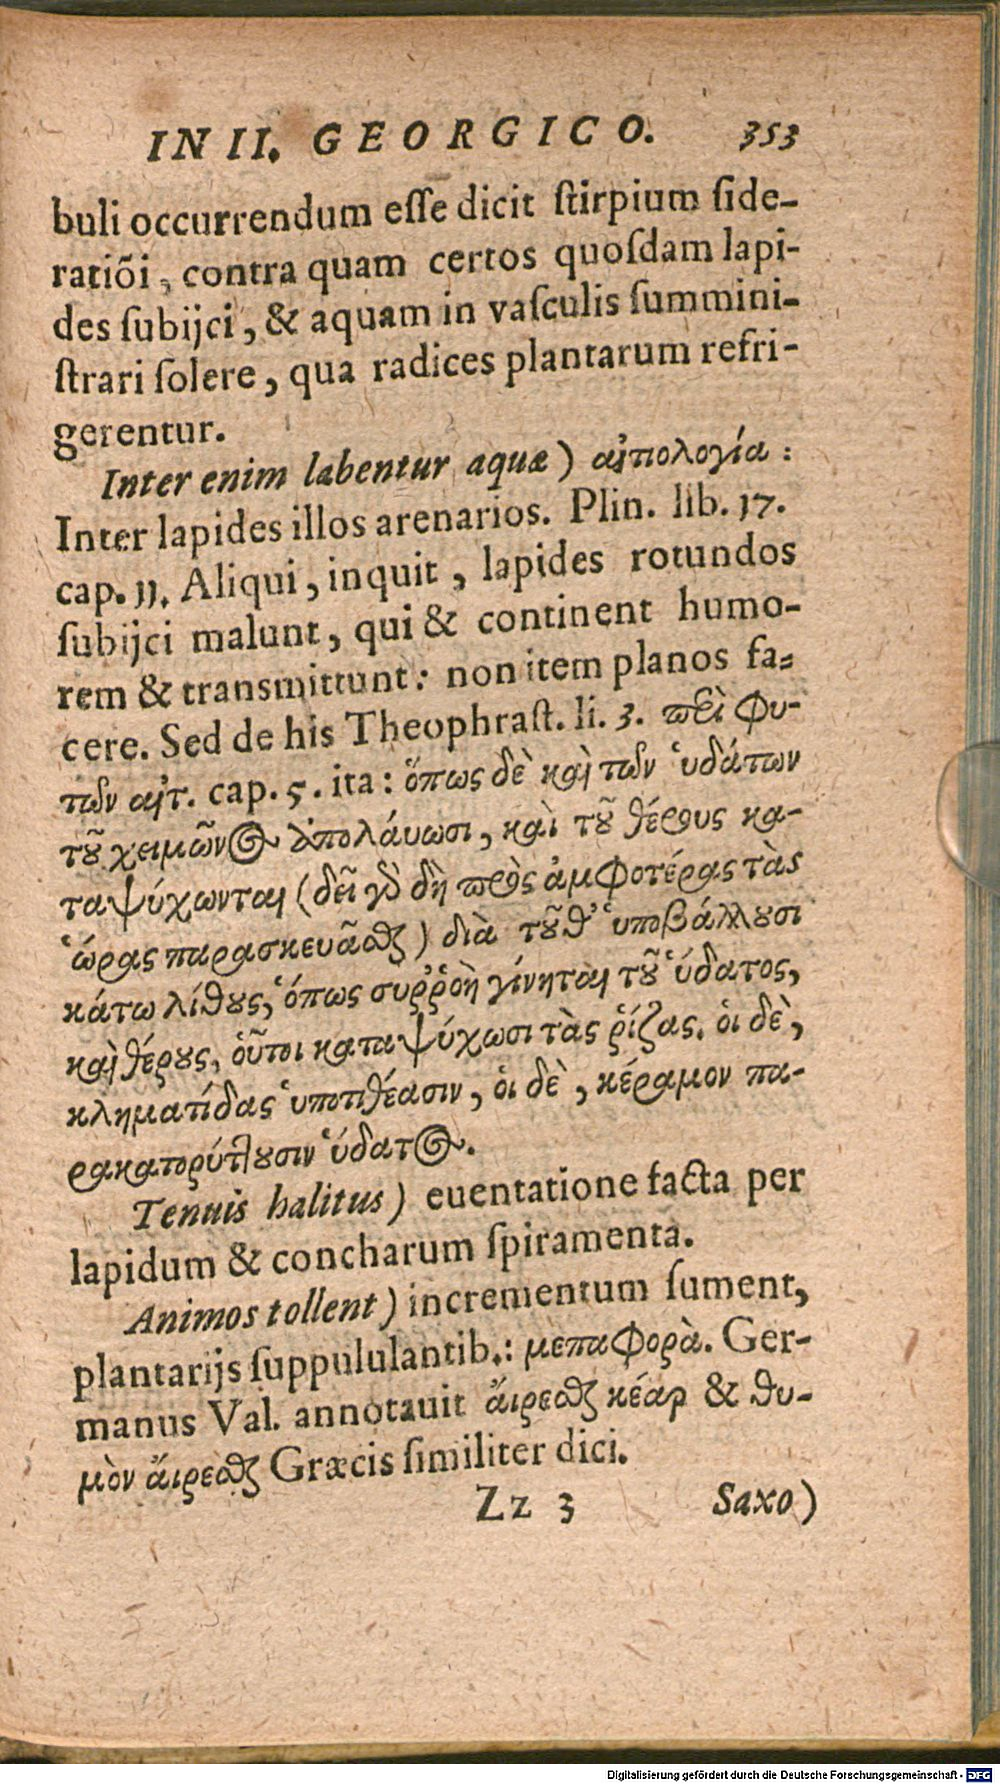 IN II. GEORGICO. 353
buli occurrendum eſſe dicit ſtirpium ſide-
ratiõi, contra quam certos quoſdam lapi-
des ſubijci, & aquam in vaſculis ſummini-
ſtrari ſolere, qua radices plantarum refri-
gerentur.
Inter enim labentur aquæ) αἰτιολογία:
Inter lapides illos arenarios. Plin. lib. 17.
cap. 11. Aliqui, inquit, lapides rotundos
ſubijci malunt, qui & continent humo-
rem & transmittunt: non item planos fa-
cere. Sed de his Theophraſt. li. 3. περὶ φυ-
τῶν αἰτ. cap. 5. ita: ὅπως δὲ καὶ τῶν ὑδάτων
τοῦ χειμῶνος ἀπολάυωσι, καὶ τοῦ θέρους κα-
ταψύχωνται (δεῖ γὰρ δὴ πρὸς ἀμφοτέρας τὰς
ὥρας παρασκευᾶσθαι) διὰ τοῦθ' ὑποβάλλουσι
κάτω λίθους, ὅπως συῤῥοὴ γίνηται τοῦ ὕδατος,
καὶ θέρους, οὗτοι καταψύχωσι τὰς ῥίζας. οἱ δὲ,
κληματίδας ὑποτιθέασιν, οἱ δὲ, κέραμον πα-
ρακατορύττουσιν ὕδατος.
Tenuis halitus) euentatione facta per
lapidum & concharum ſpiramenta.
Animos tollent) incrementum ſument,
plantarijs ſuppululantib.: μεταφορὰ. Ger-
manus Val. annotauit ἄιρεσθαι κέαρ & θυ-
μὸν ἄιρεσθαι Græcis ſimiliter dici.
Zz 3 Saxo)
Digitalisierung gefördert durch die Deutsche Forschungsgemeinschaft - DFG